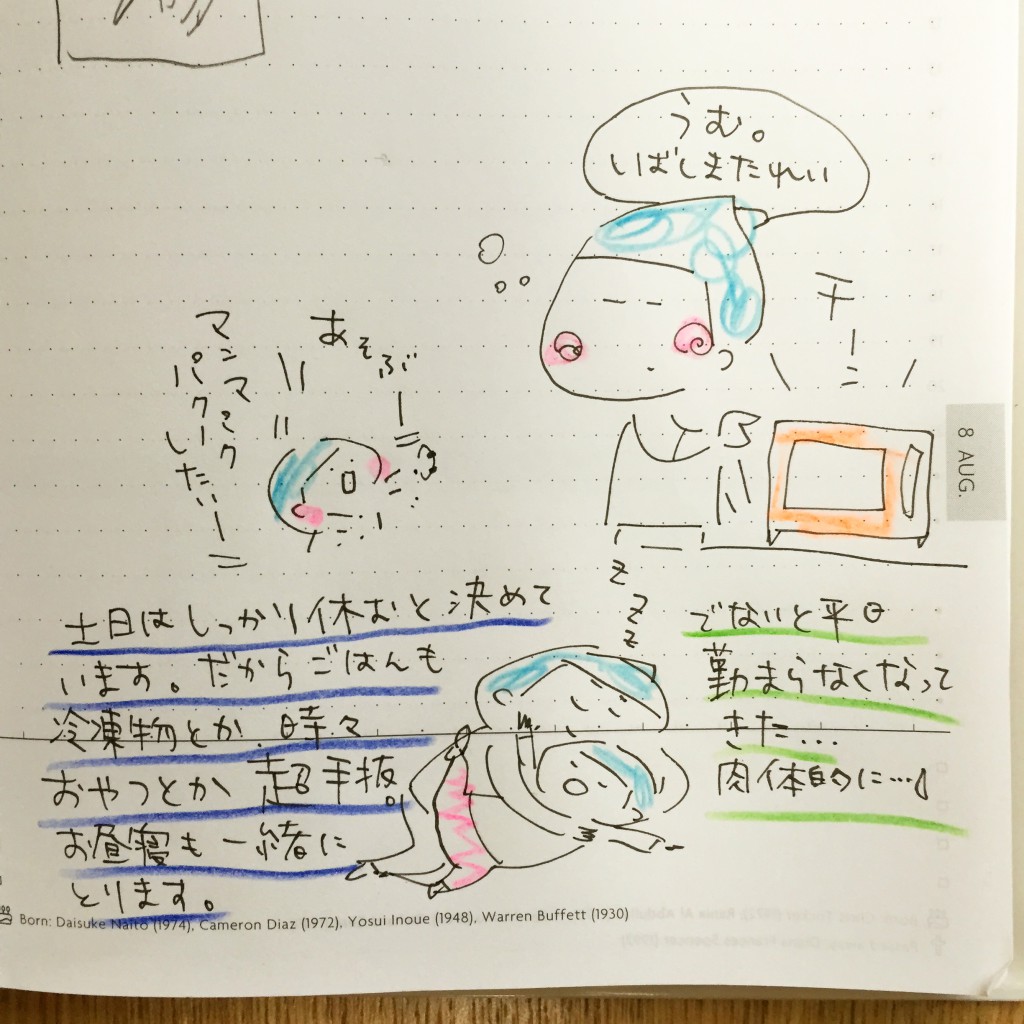 うむ。
しばしまたれい
チーン
あそぶー
マンマミク
パクーしたいー
8 AUG.
z
z
z
土日はしっかり休むと決めて
います。だからごはんも
冷凍物とか、時々
おやつとか超手抜。
お昼寝も一緒に
とります。
でないと平日
勤まらなくなって
きた...
肉体的に…」
Born: Daisuke Naito (1974), Cameron Diaz (1972), Yosui Inoue (1948), Warren Buffett (1930)